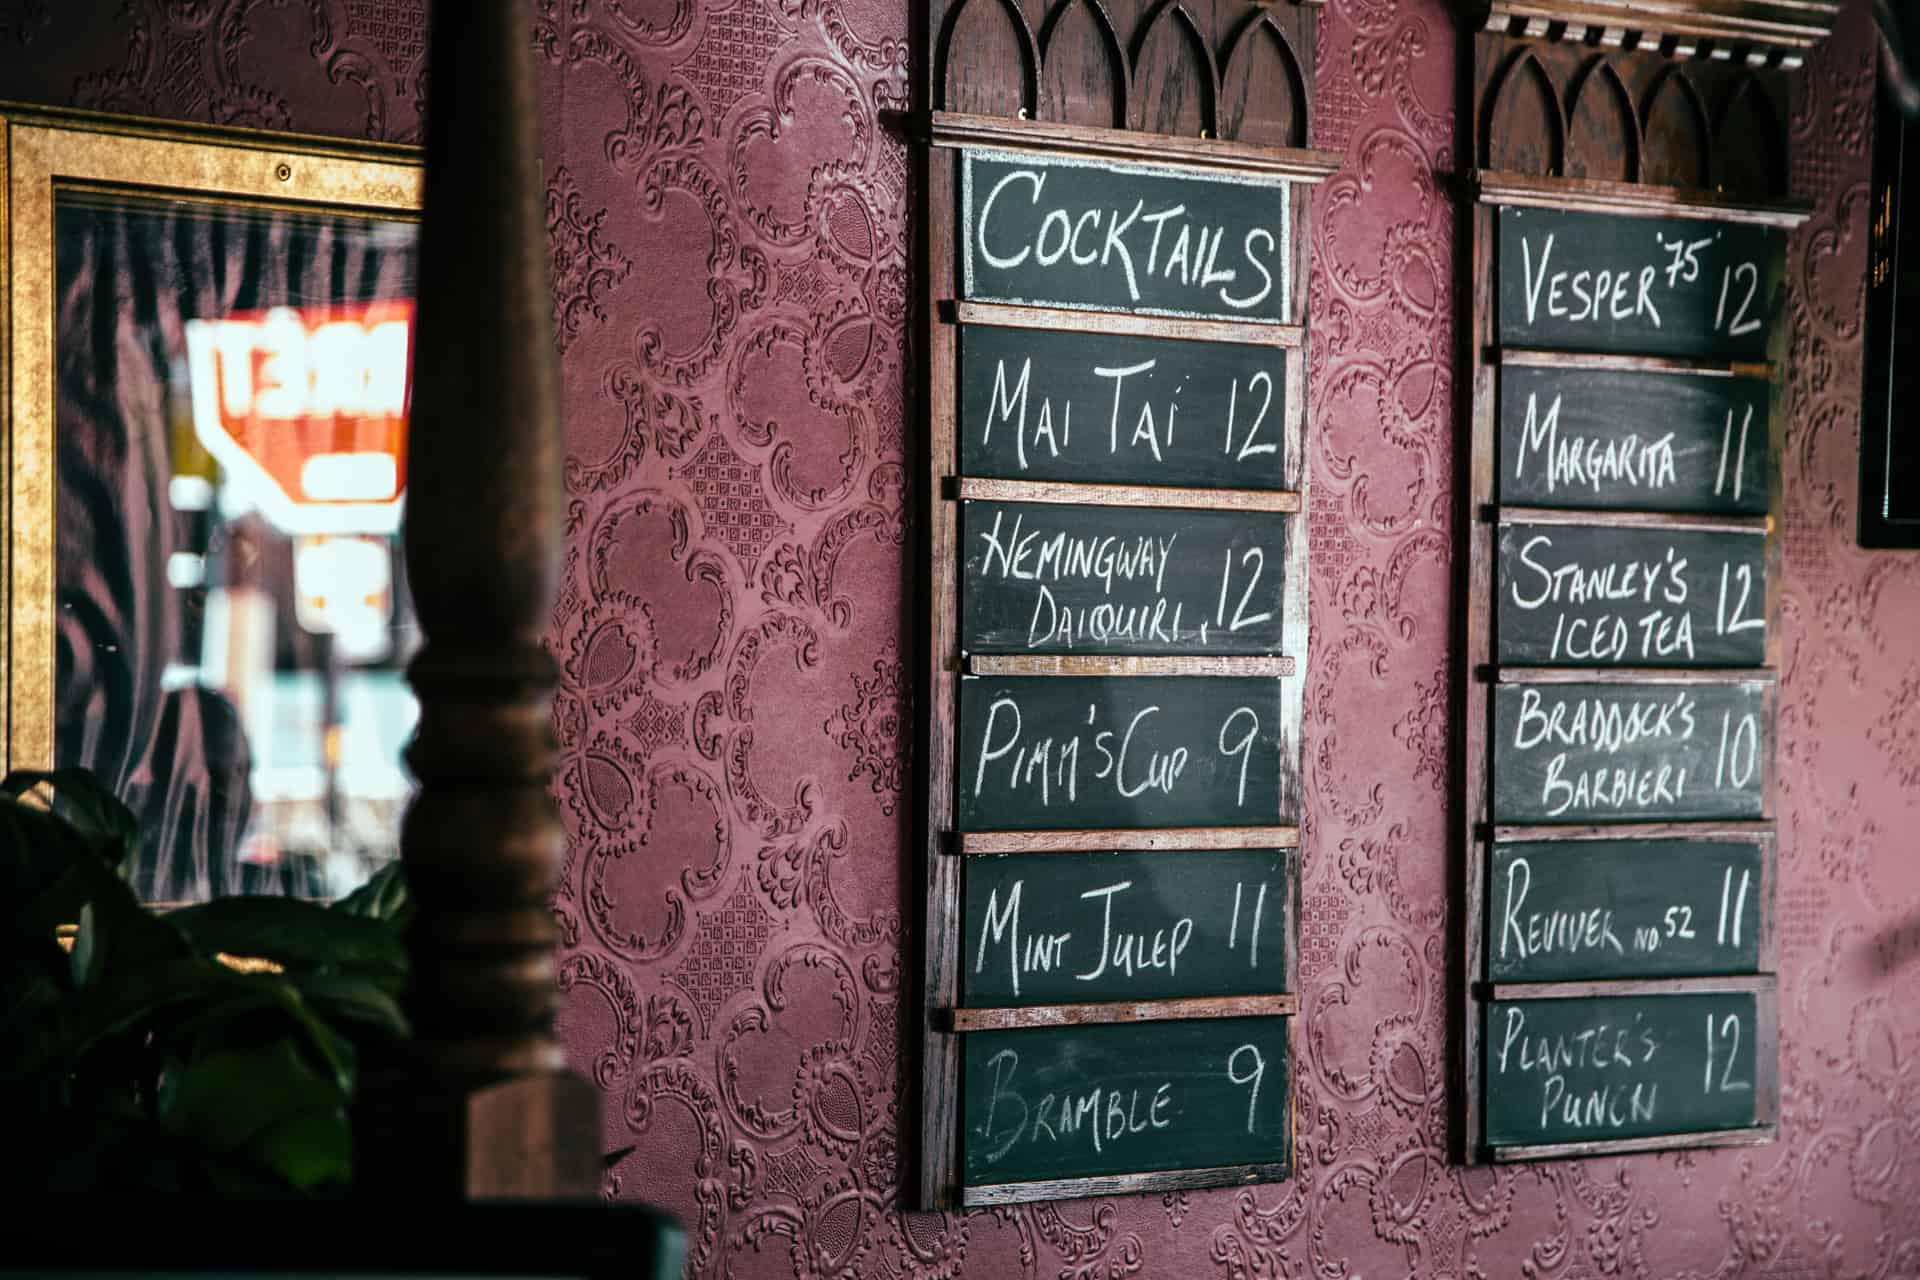 COCKTAILS
MAI TAI 12
HEMINGWAY
DAIQUIRI 12
PIMM'S CUP 9
MINT JULEP 11
BRAMBLE 9
VESPER '75' 12
MARGARITA 11
STANLEY'S
ICED TEA 12
BRADDOCK'S
BARBIERI 10
REVIVER NO. 52 11
PLANTER'S
PUNCH 12